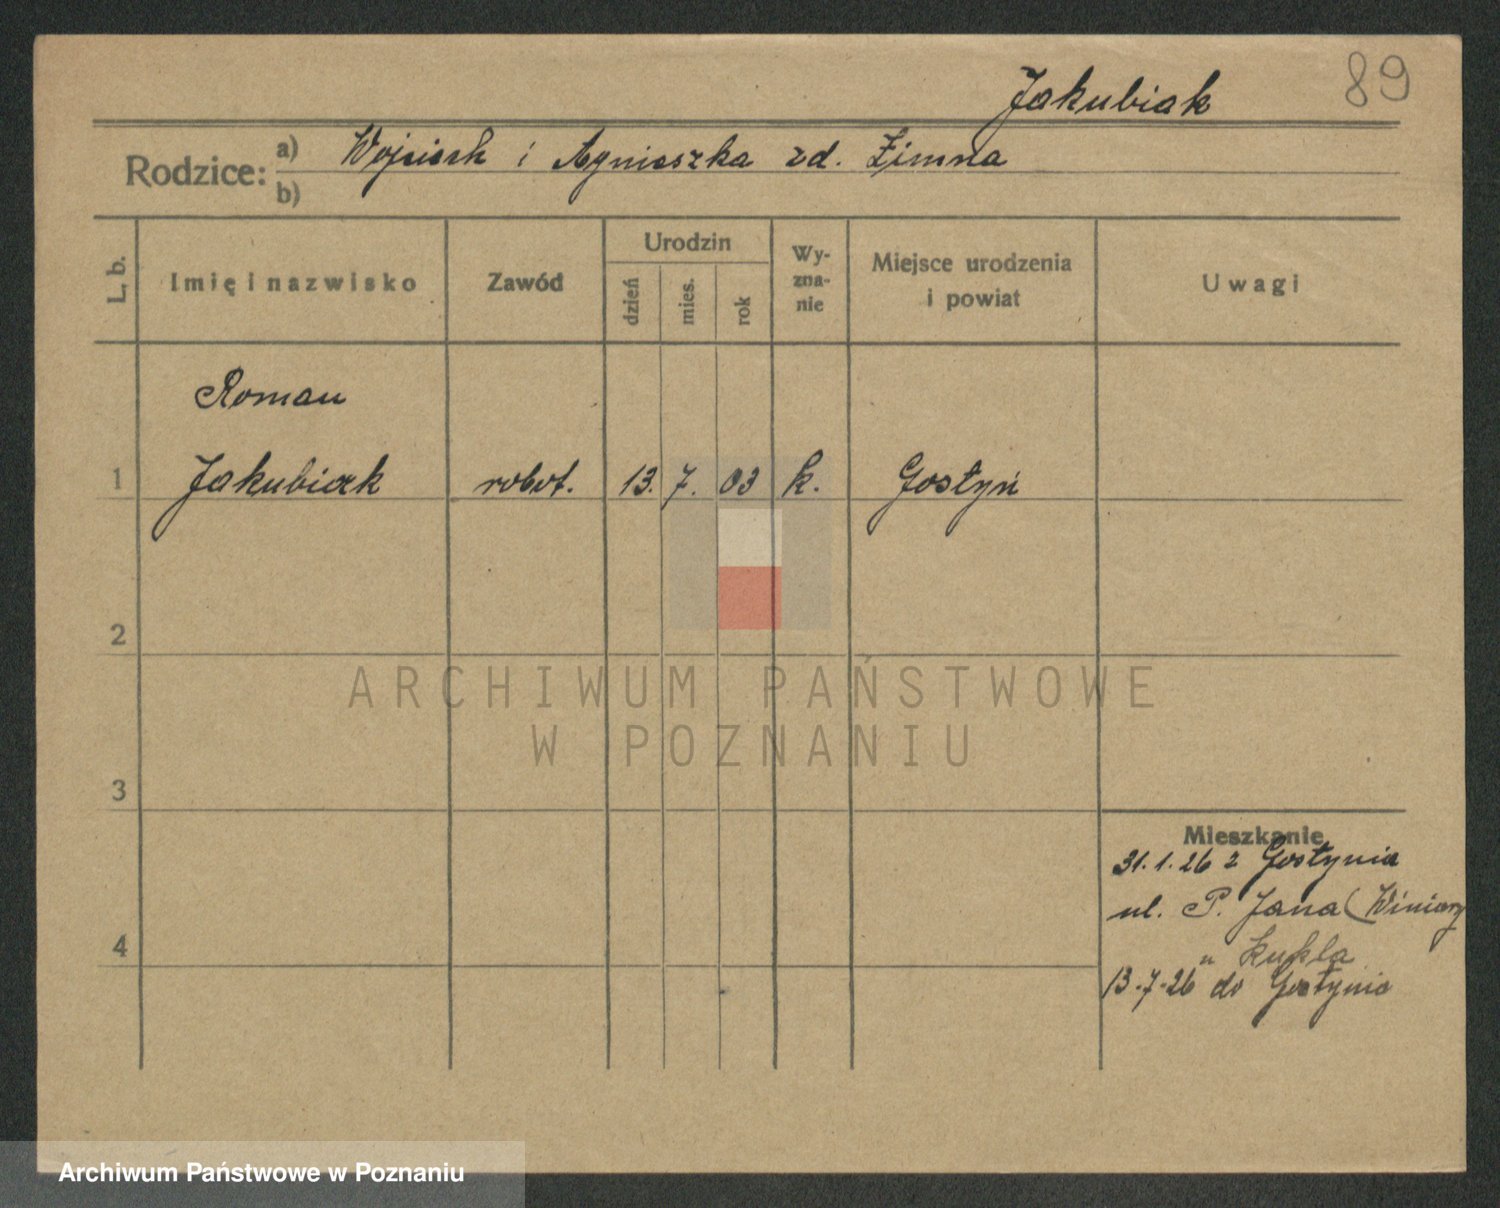 89
Jakubiak
Rodzice: a) Wojciech i Agnieszka zd. Zimna
b)
L. b. Imię i nazwisko Zawód Urodzin dzień mies. rok Wyznanie Miejsce urodzenia i powiat Uwagi
Roman
1 Jakubiak robot. 13. 7. 03 k. Gostyń
2
ARCHIWUM PAŃSTWOWE
W POZNANIU
3
Mieszkanie
31.1.26 z Gostynia
ul. P. Jana (Winiary
4
u Kukla
13-7-26 do Gostynia
Archiwum Państwowe w Poznaniu